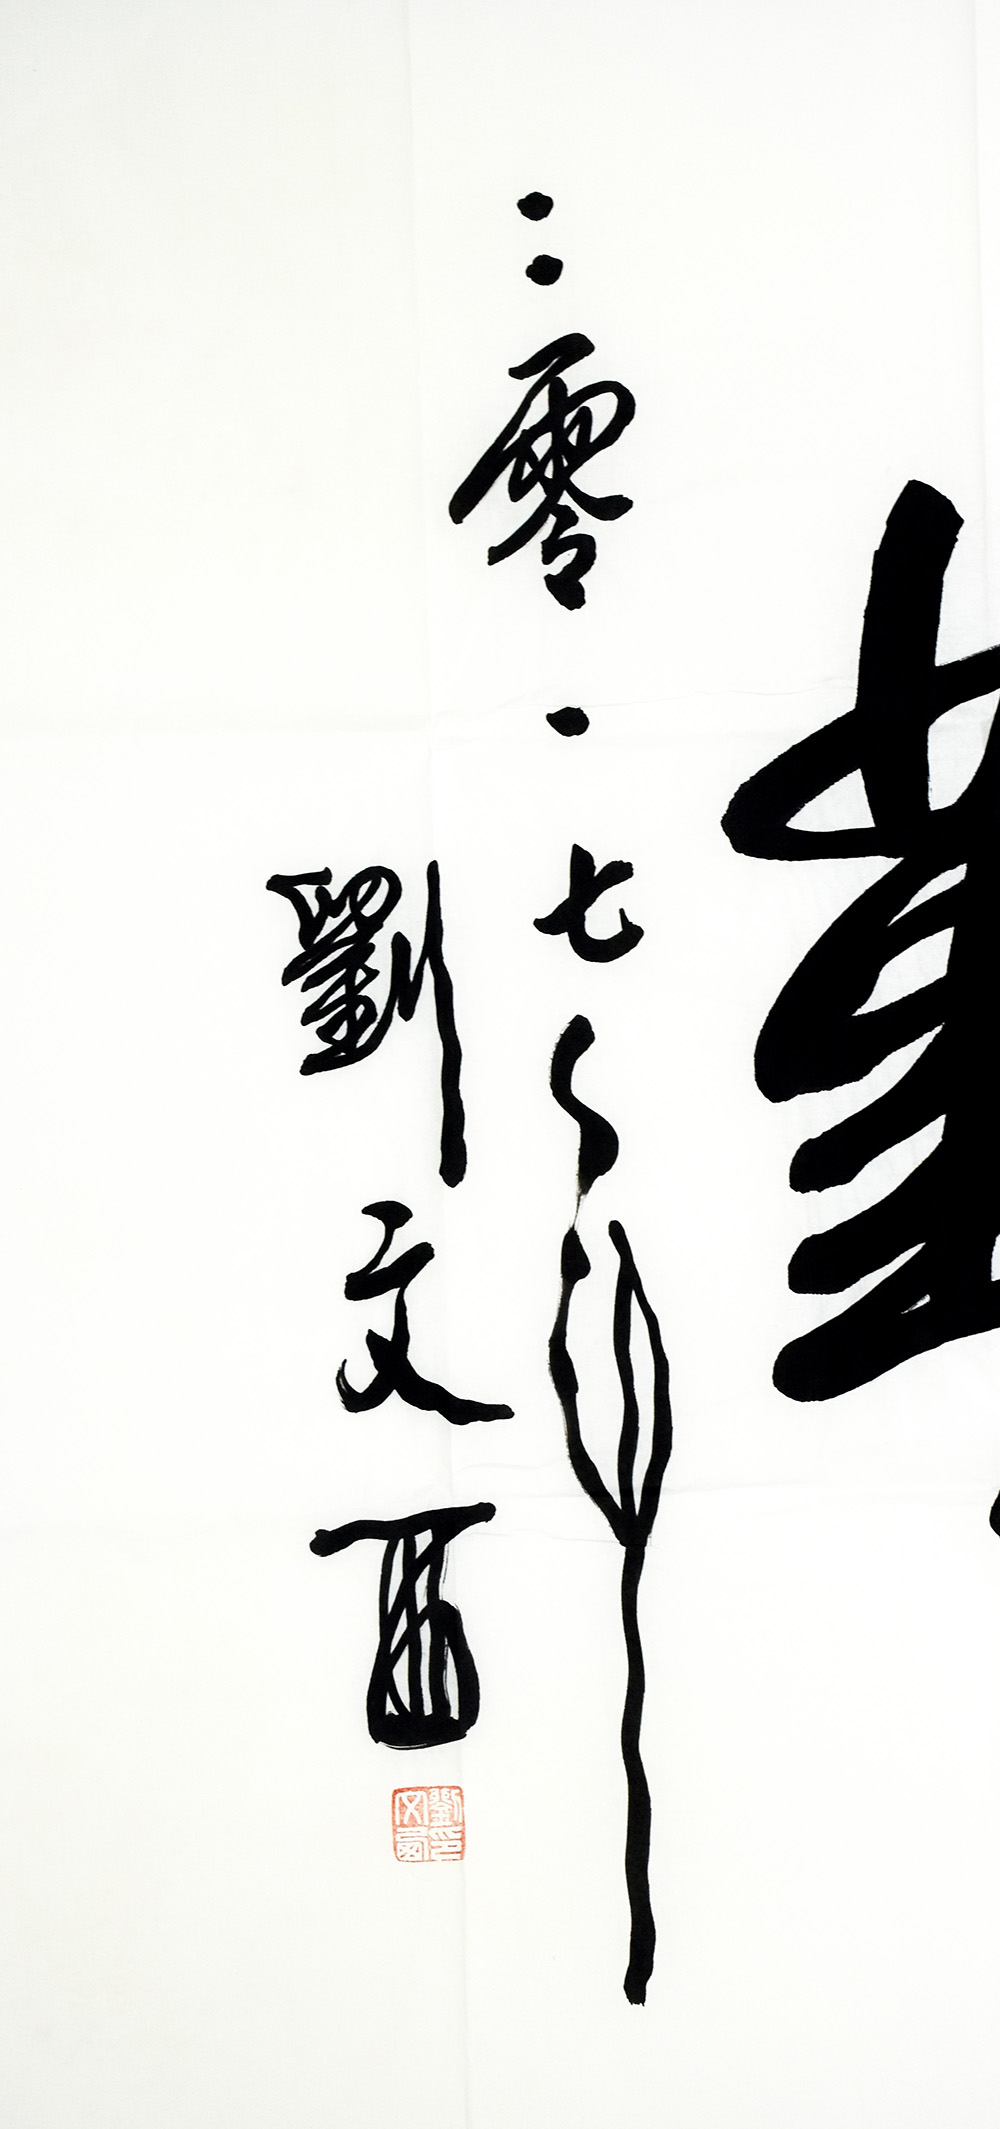 二零一七年
劉文西
劉文西印